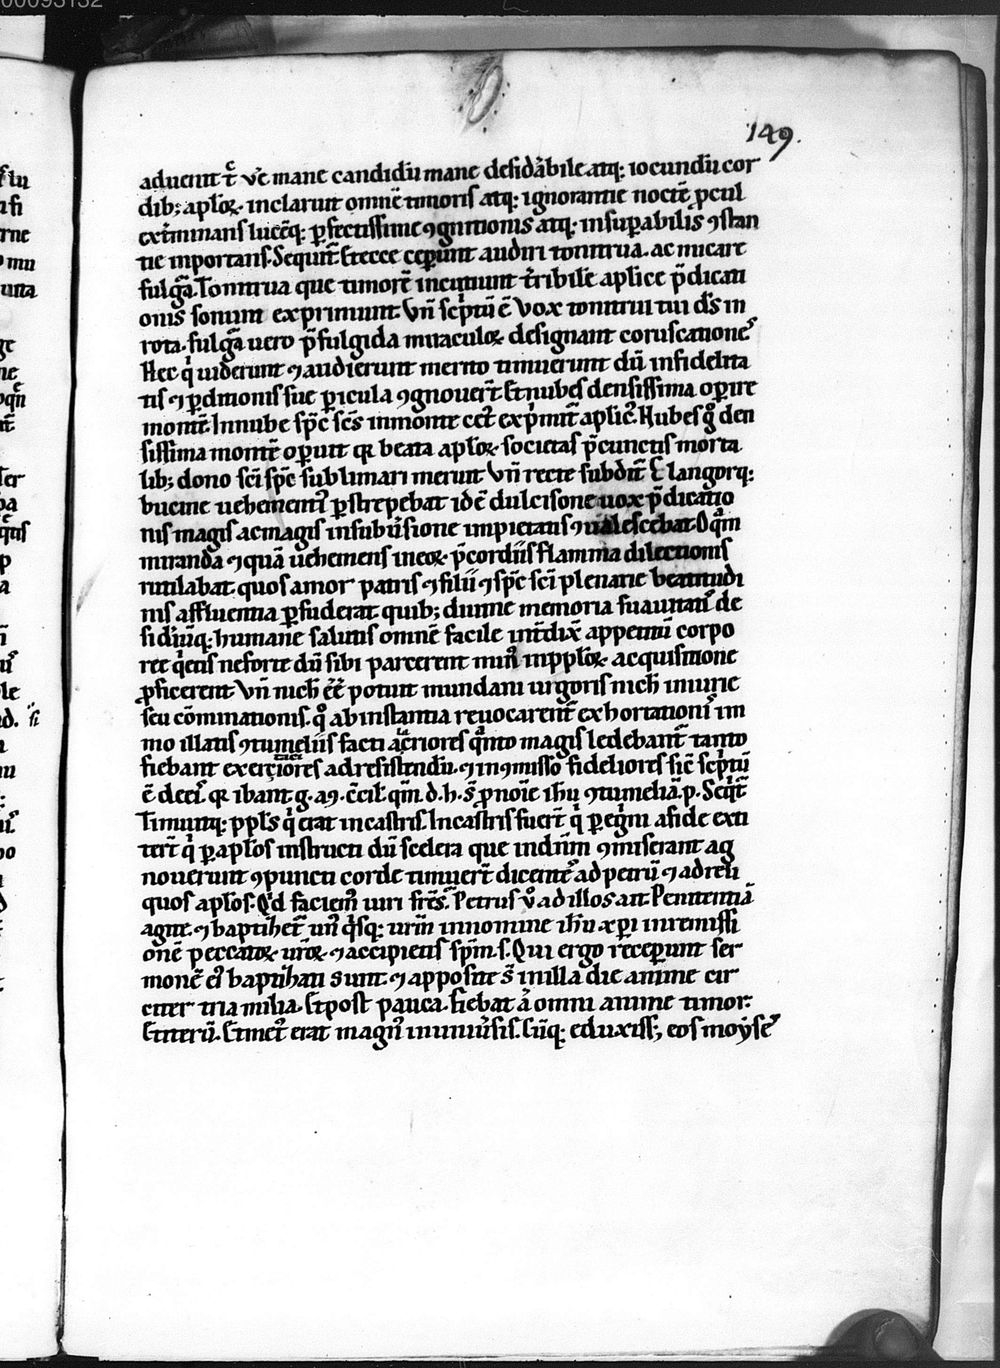 149.
aduenit t̄c ve mane candidū mane desid̾abile atq: iocundū cor
dib; apl̄oꝝ. inclaruit omnē timoris atq: ignorantie noctē ꝓcul
ext̾minans lucēq: ꝑfectissime ꝯgnitionis atq: insupabilis ꝯstan
tie inportans. Sequit̄ Et ecce ceꝑunt audiri tonitrua. ac micare
fulg̾a. Tonitrua que timorē incutiunt t̾ribilē aplice p̄dicati
onis sonum exprimunt. Vn̄ sc̄ptū ē Vox tonitrui tui d̄s in
rota. fulg̾a uero p̄fulgida miraculoꝝ designant coruscatiōes
Hec q̇ uiderunt ⁊ audierunt merito timuerunt dū infidelita
tis ⁊ ꝑditionis sue ꝑicula ꝯgnouer̄t Et nubes densissima oꝑire
montē. In nube sp̄c sc̄s in monte cet̾ exp̄mit̄ aplic̾. Nubes g̊ den
sissima montē oꝑuit qꝛ beata apl̄oꝝ societas p̄ cunctis morta
lib; dono sc̄i sp̄c sublimari meruit Vn̄ recte subdit̄ Clangorq:
bucine uehementi̾ ꝑstrepebat idē dulcisone uox p̄dicatio
nis magis ac magis in subu̾sione impietatis ꝯualescebat. O qm̄
miranda ⁊ quā uehemens in eoꝝ p̄cordiis flamma dilectionis
rutilabat. quos amor patris ⁊ filii ⁊ sp̄c sc̄i plenarie beatitudi
nis affluentia ꝑfuderat quib; diuine memoria suauitati̾ de
sidiūq: humane salutis omnē facile int̄dix̄ appetitū corpo
ree q̄etis ne forte dū sibi parcerent min̾ in ppl̄oꝝ acquisitione
ꝓficerent Vn̄ nich̄ e̅e̅ potuit mundani uigoris nich̄ iniurie
seu cōminationis. q̊ ab instantia reuocarent̄ exhortationi̾ im
mo illatis ꝯtumeliis facti ac̾riores q̄nto magis ledebant̄ tanto
fiebant exerciores ad resistendū. ⁊ in ꝯmisso fideliores sic̄ sc̄ptū
ē de ei̾. qꝛ ibant g. a ꝯ. c̄cil̄. qm̄ d. h. s̄ ꝓ noīe ih̄u ꝯtumeliā. p. Seq̄t̄
Timuitq: ppl̄s q̇ erat in castris. In castris fuer̄t q̇ ꝑ egn̄i a fide exti
ter̄t q̇ ꝑ apl̄os instructi dū scelera que in dn̄m ꝯmiserant ag
nouerunt ꝯpuncti corde timuer̄t dicentes̾ ad petrū ⁊ ad reli
quos apl̄os. Q̇d faciem̾ uiri fr̄es. Petrus v̊ ad illos ait. Penitentiā
agite. ⁊ baptiȝet̄ un̾ q̇sq: ur̄m in nomine ih̄u xp̄i in remissi
onē peccatoꝝ ur̄oꝝ ⁊ accipietis sp̄m. s. Qui ergo receꝑunt ser
monē ei̾ baptiȝati sunt. ⁊ apposite s̄ in illa die anime cir
citer tria milia. Et post pauca. Fiebat ā omni anime timor.
Et iterū. Et met̾ erat magn̾ in uniu̾sis. Cūq: eduxiss; eos moyses̾